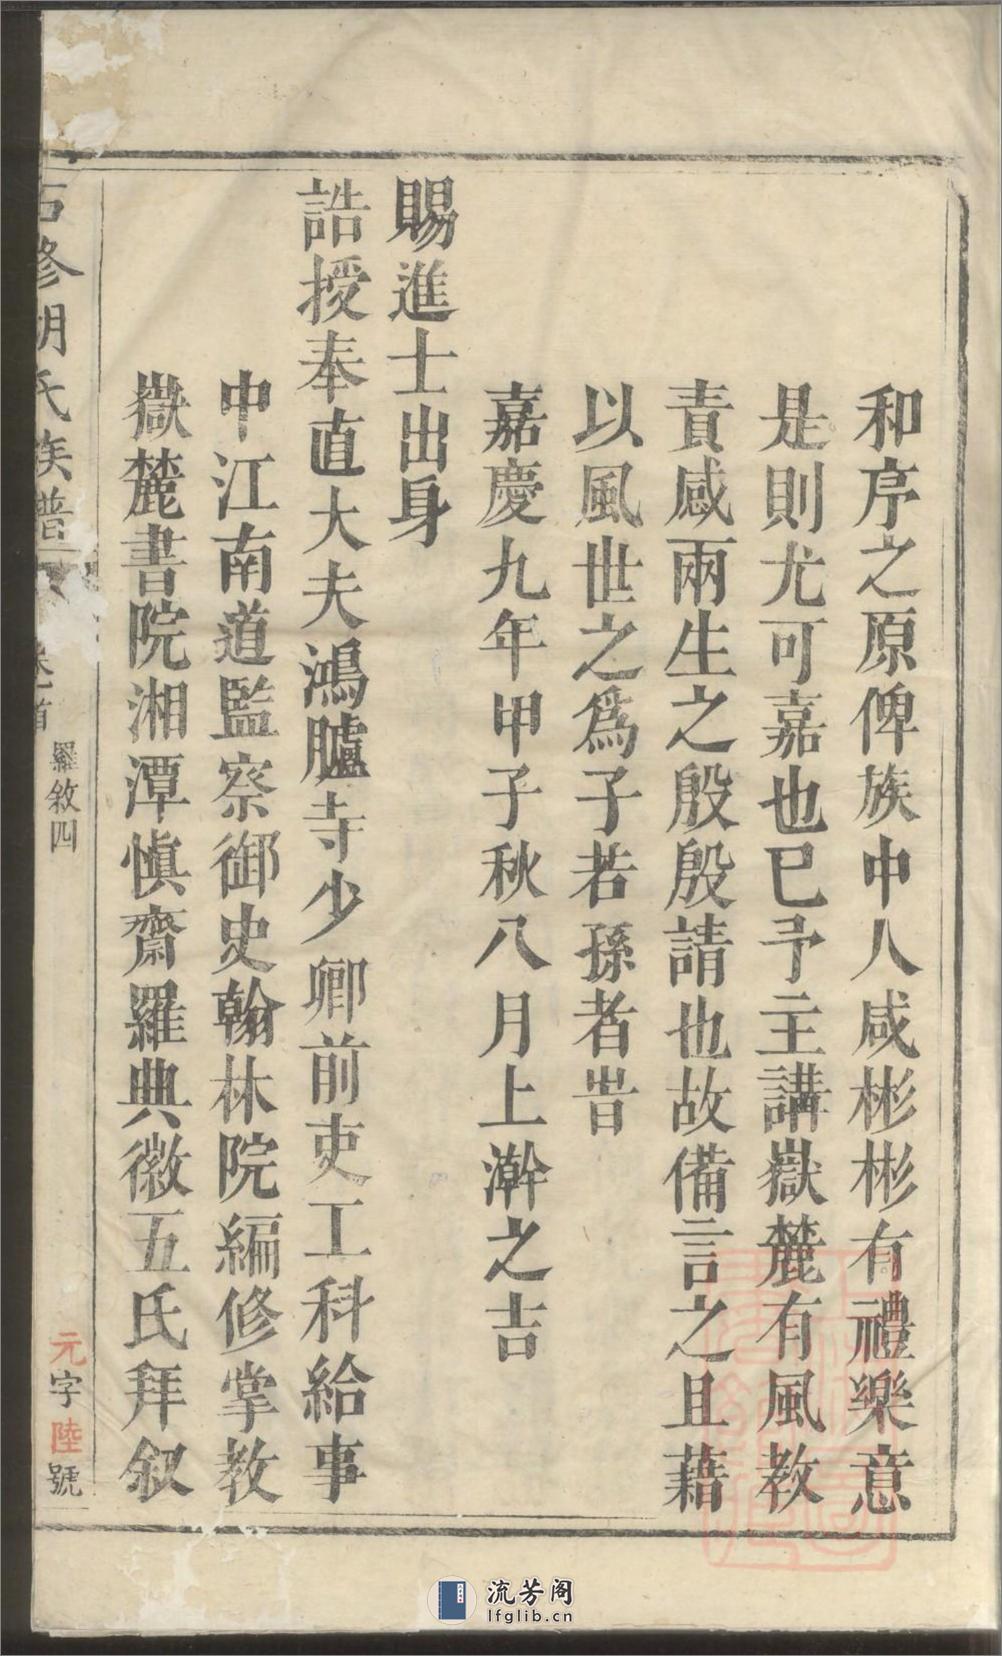 和序之原俾族中人咸彬彬有禮樂意
是則尤可嘉也已予主講嶽麓有風教
責感兩生之殷殷請也故備言之且藉
以風世之為子若孫者旹
嘉慶九年甲子秋八月上澣之吉
賜進士出身
誥授奉直大夫鴻臚寺少卿前吏工科給事
中江南道監察御史翰林院編修掌教
嶽麓書院湘潭慎齋羅典徽五氏拜叙
石修胡氏族譜 卷首 羅敘四 元字陸號
流芳阁
lfglib.cn